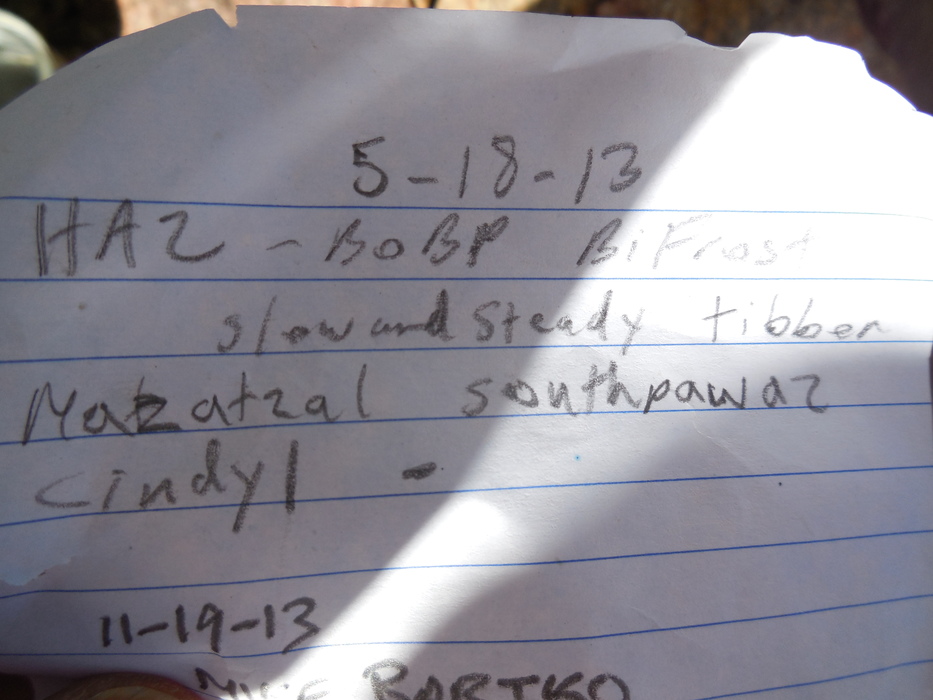 5-18-13
HAZ - BoBP BiFrost
slowandsteady tibber
Mazatzal southpawaz
cindyl -
11-19-13
MIKE BARTKO